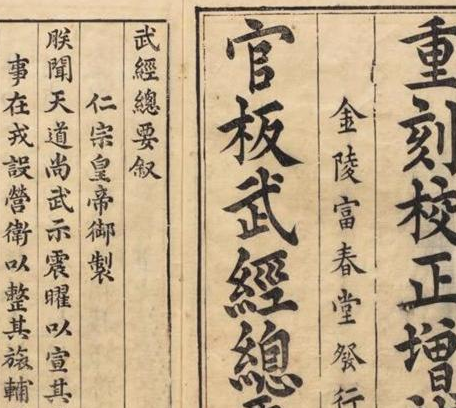 重刻校正增
金陵富春堂發行
官板武經總
武經總要叙
仁宗皇帝御製
朕聞天道尚武示震曜以宣其
事在戎設營衛以整其旅輔